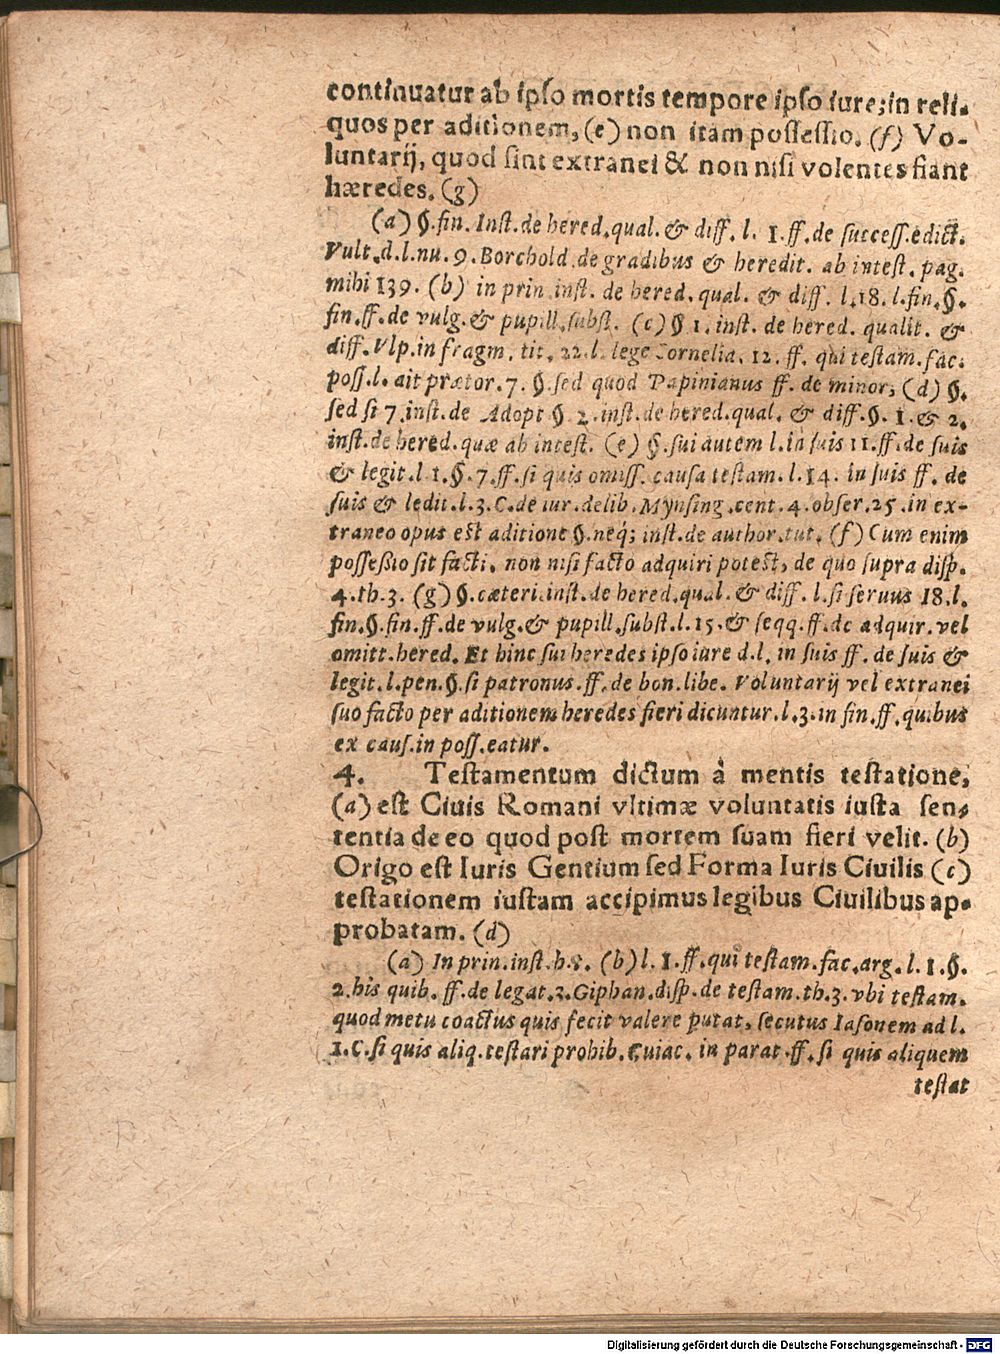 continuatur ab ipſo mortis tempore ipſo iure; in reli-
quos per aditionem, (e) non itam poſſeſſio. (f) Vo-
luntarij, quod ſint extranei & non niſi volentes fiant
hæredes. (g)
(a) §. fin. Inſt. de hered. qual. & diff. l. 1. ff. de ſucceſſ. edict.
Vult. d. l. nu. 9. Borchold. de gradibus & heredit. ab inteſt. pag.
mihi 139. (b) in prin. inſt. de hered. qual. & diff. l. 18. l. fin. §.
fin. ff. de vulg. & pupill. ſubſt. (c) § 1. inſt. de hered. qualit. &
diff. Vlp. in fragm. tit. 22. l. lege Cornelia. 12. ff. qui teſtam. fac.
poſſ. l. ait prætor. 7. §. ſed quod Papinianus ff. de minor; (d) §.
ſed ſi 7. inſt. de Adopt § 2. inſt. de hered. qual. & diff. §. 1. & 2.
inſt. de hered. quæ ab inteſt. (e) §. ſui autem l. in ſuis 11. ff. de ſuis
& legit. l 1. §. 7. ff. ſi quis omiſſ. cauſa teſtam. l. 14. in ſuis ff. de
ſuis & ledit. l. 3. C. de iur. delib. Mynſing. cent. 4. obſer. 25. in ex-
traneo opus eſt aditione §. neq; inſt. de author. tut. (f) Cum enim
poſſeßio ſit facti, non niſi facto adquiri poteſt, de quo ſupra diſp.
4. th. 3. (g) §. cæteri. inſt. de hered. qual. & diff. l. ſi ſeruus 18. l.
fin. §. fin. ff. de vulg. & pupill. ſubſt. l. 15. & ſeqq. ff. de adquir. vel
omitt. hered. Et hinc ſui heredes ipſo iure d. l. in ſuis ff. de ſuis &
legit. l. pen. §. ſi patronus. ff. de bon. libe. Voluntarij vel extranei
ſuo facto per aditionem heredes fieri dicuntur. l. 3. in fin. ff. quibus
ex cauſ. in poſſ. eatur.
4. Teſtamentum dictum à mentis teſtatione,
(a) eſt Ciuis Romani vltimæ voluntatis iuſta ſen-
tentia de eo quod poſt mortem ſuam fieri velit. (b)
Origo eſt Iuris Gentium ſed Forma Iuris Ciuilis (c)
teſtationem iuſtam accipimus legibus Ciuilibus ap-
probatam. (d)
(a) In prin. inſt. h. t. (b) l. 1. ff. qui teſtam. fac. arg. l. 1. §.
2. his quib. ff. de legat. 3. Giphan. diſp. de teſtam. th. 3. vbi teſtam.
quod metu coactus quis fecit valere putat, ſecutus Iaſonem ad l.
1. C. ſi quis aliq. teſtari prohib. Cuiac. in parat. ff. ſi quis aliquem
teſtat
Digitalisierung gefördert durch die Deutsche Forschungsgemeinschaft - DFG